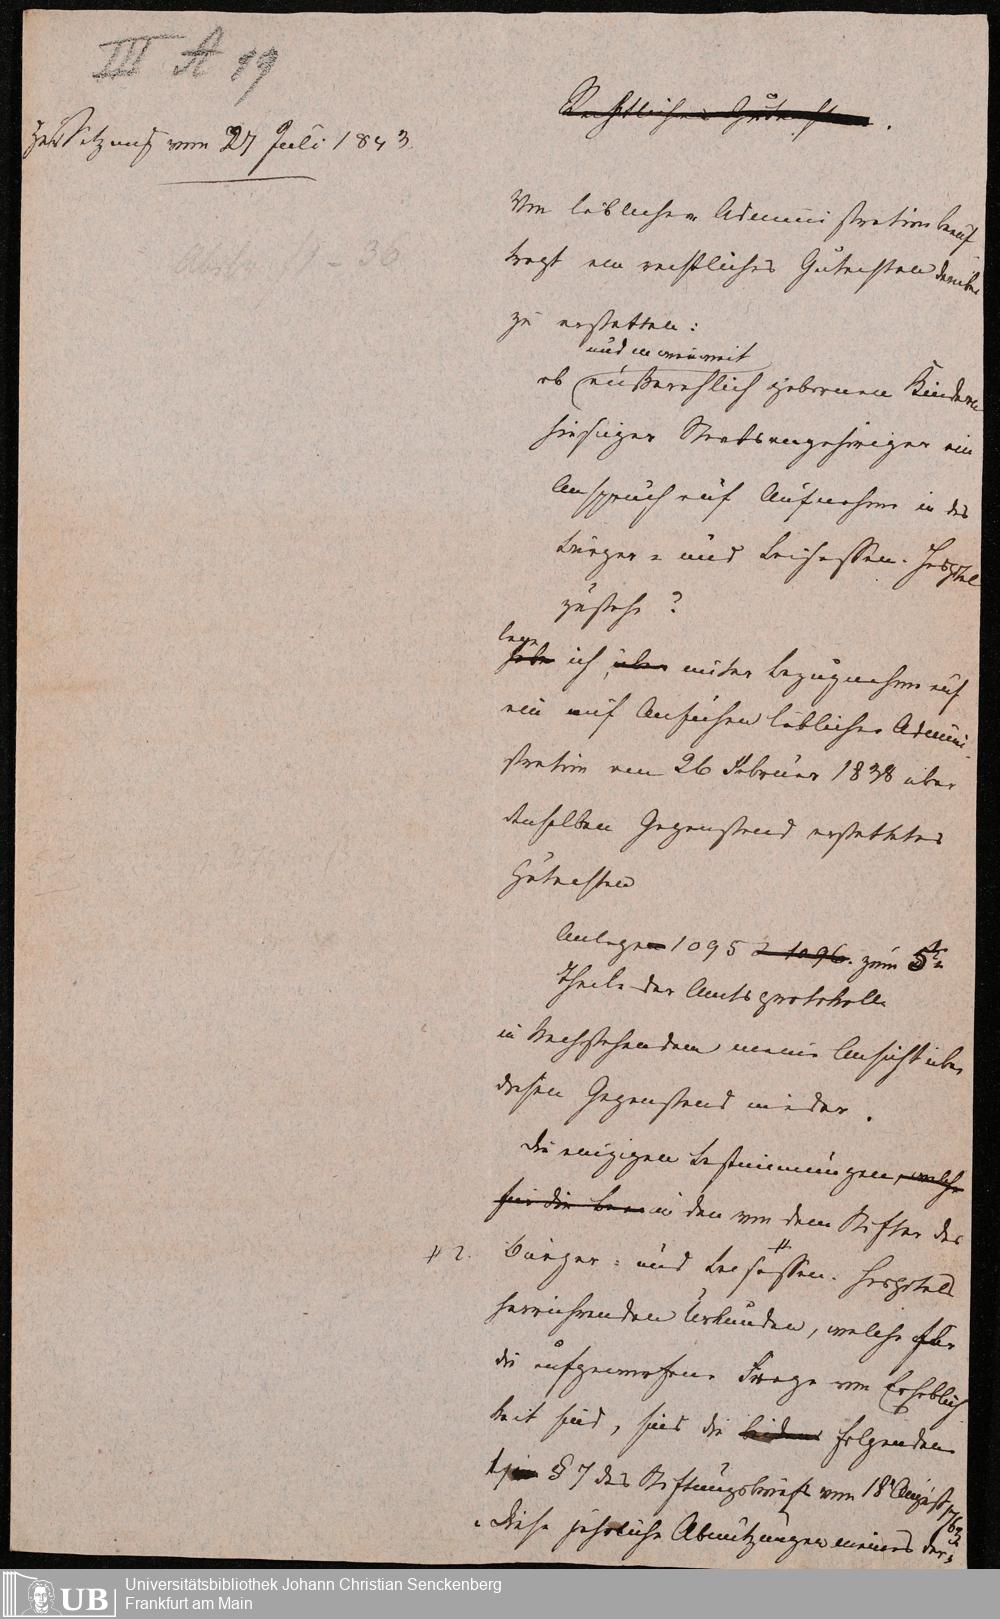 III A 19
Zur Sitzung vom 27 Juli 1843.
Rechtliches Gutachten.
Von löblicher Administration beauf
tragt ein rechtliches Gutachten darüber
zu erstatten:
und in wie weit
ob außerehlich gebornen Kindern
hiesiger Staatsangehöriger ein
Anspruch auf Aufnahme in das
Bürger- und Beisassen-Hospital
zustehe?
lege
habe ich, über unter Bezugnahme auf
ein auf Ansuchen löblicher Admini-
stration am 26 Februar 1838 über
denselben Gegenstand erstattetes
Gutachten
Anlagen 1095 & 1096. zum 5ten
Theile der Amtsprotokolle
in Nachstehendem meine Ansicht über
diesen Gegenstand nieder.
Die einzigen Bestimmungen, welche
für die in den von dem Stifter des
# 2.
Bürger- und Beisassen-Hospitals
herrührenden Urkunden, welche für
die aufgeworfene Frage von Erheblich
keit sind, sind die beiden folgenden
1, § 7 des Stiftungsbriefs vom 18 August 1763
„Diese jährliche Abnutzungen meines der-
Universitätsbibliothek Johann Christian Senckenberg
Frankfurt am Main
UB